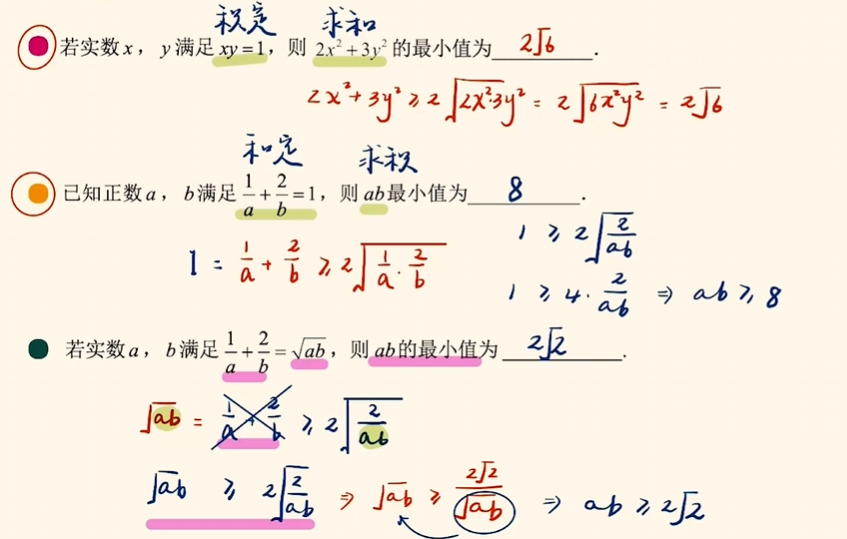 积定 求和
若实数x，y满足xy=1，则 2x²+3y² 的最小值为 2√6 .
2x²+3y² ≥ 2√(2x²·3y²) = 2√(6x²y²) = 2√6
和定 求积
已知正数a，b满足 1/a + 2/b =1，则 ab最小值为 8 .
1 ≥ 2√(2/ab)
1 = 1/a + 2/b ≥ 2√(1/a · 2/b)
1 ≥ 4 · 2/ab ⇒ ab ≥ 8
若实数a，b满足 1/a + 2/b = √ab，则 ab的最小值为 2√2 .
√ab = 1/a + 2/b ≥ 2√(2/ab)
√ab ≥ 2√(2/ab) ⇒ √ab ≥ 2√2/√ab ⇒ ab ≥ 2√2